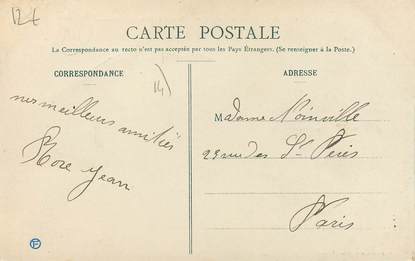 12€
CARTE POSTALE
La Correspondance au recto n'est pas acceptée par tous les Pays Étrangers. (Se renseigner à la Poste.)
CORRESPONDANCE
nos meilleurs amitiés
Rose Jean
ADRESSE
Madame Noinville
23 rue des Sts Pères
Paris